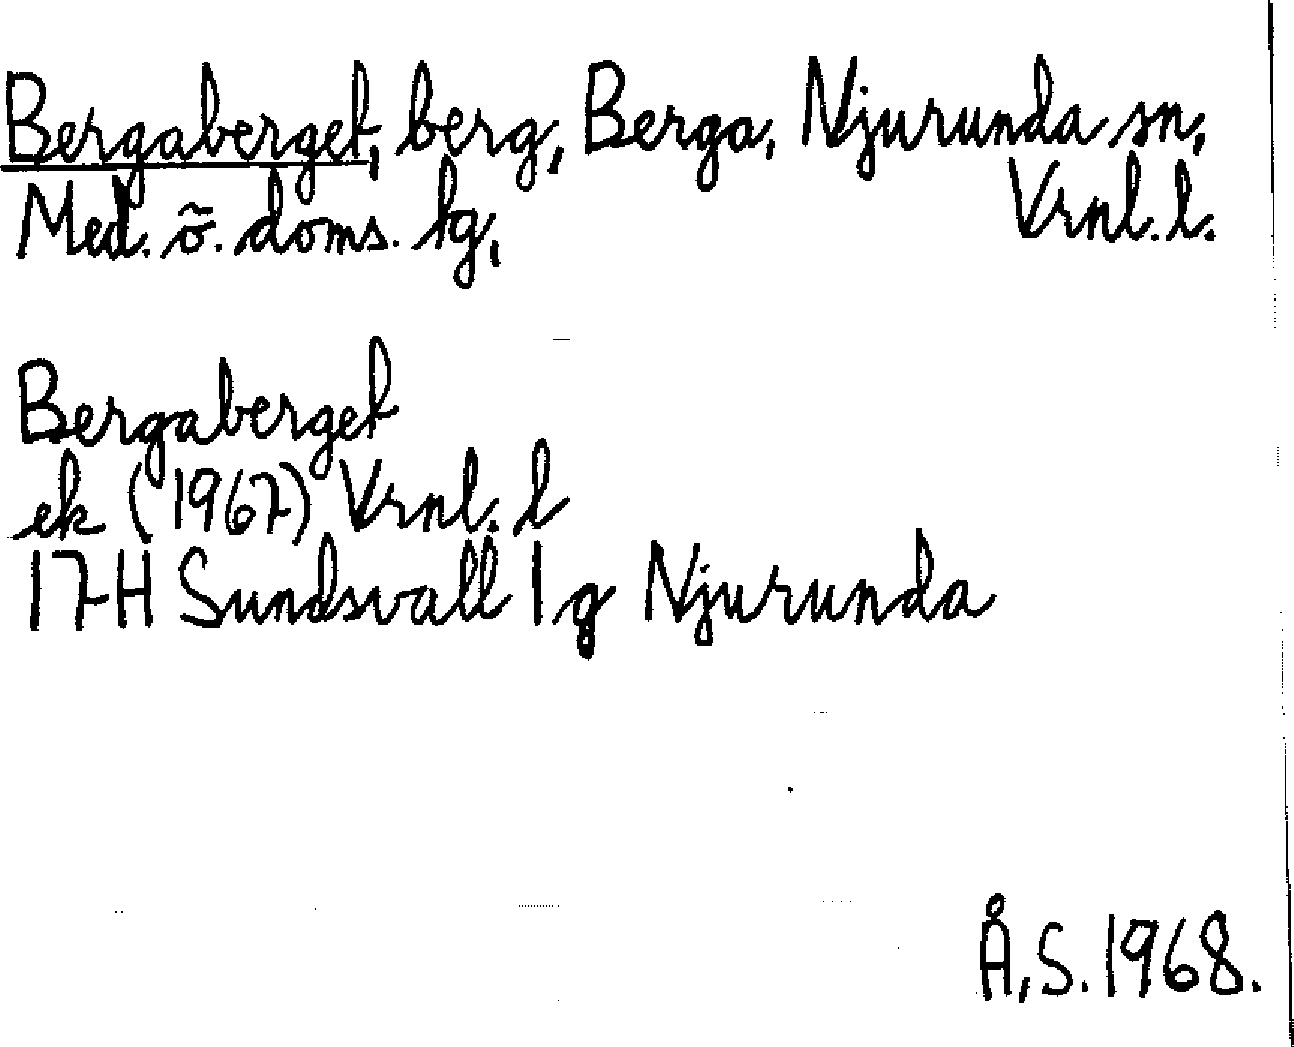 Bergaberget, berg, Berga, Njurunda sn,
Med. ö. doms. hg, Vrnl. l.
Bergaberget
ek (1967) Vrnl. l
17H Sundsvall 1g Njurunda
Å, S. 1968.